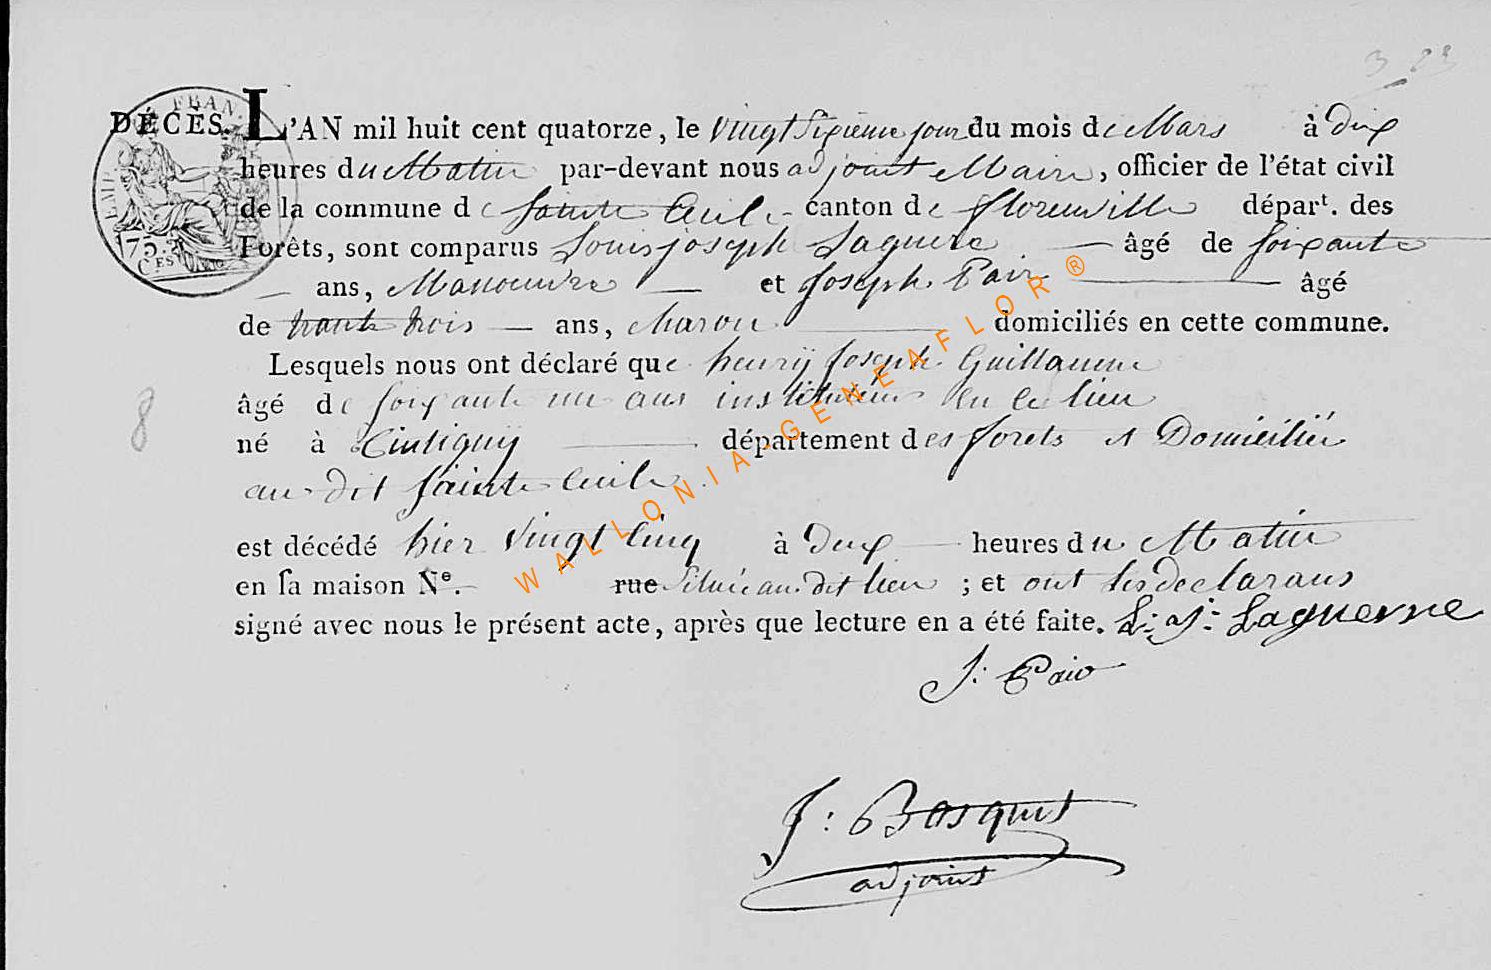 3 23
DÉCÈS. L'AN mil huit cent quatorze, le Vingt Sixieme jour du mois de Mars à dix
heures du Matin par-devant nous adjoint Maire, officier de l'état civil
de la commune de Sainte Cecile canton de florenville départ. des
Forêts, sont comparus Louis joseph Laguerre âgé de soixante
ans, Manoeuvre et Joseph Pair âgé
de trante trois ans, charon domiciliés en cette commune.
Lesquels nous ont déclaré que henrÿ Joseph Guillaume
âgé de soixante un ans instituteur en ce lieu
né à Tintignÿ département des forets et Domicilié
au dit Sainte Cecile
est décédé hier Vingt Cinq à deux heures du Matin
en sa maison Nº. rue Située au dit lieu ; et ont les declarans
signé avec nous le présent acte, après que lecture en a été faite. L: J: Laguerre
J: Pair
J: Bosquet
adjoint
8
75
C.ES
WALLONIA-GENEAFLOR®